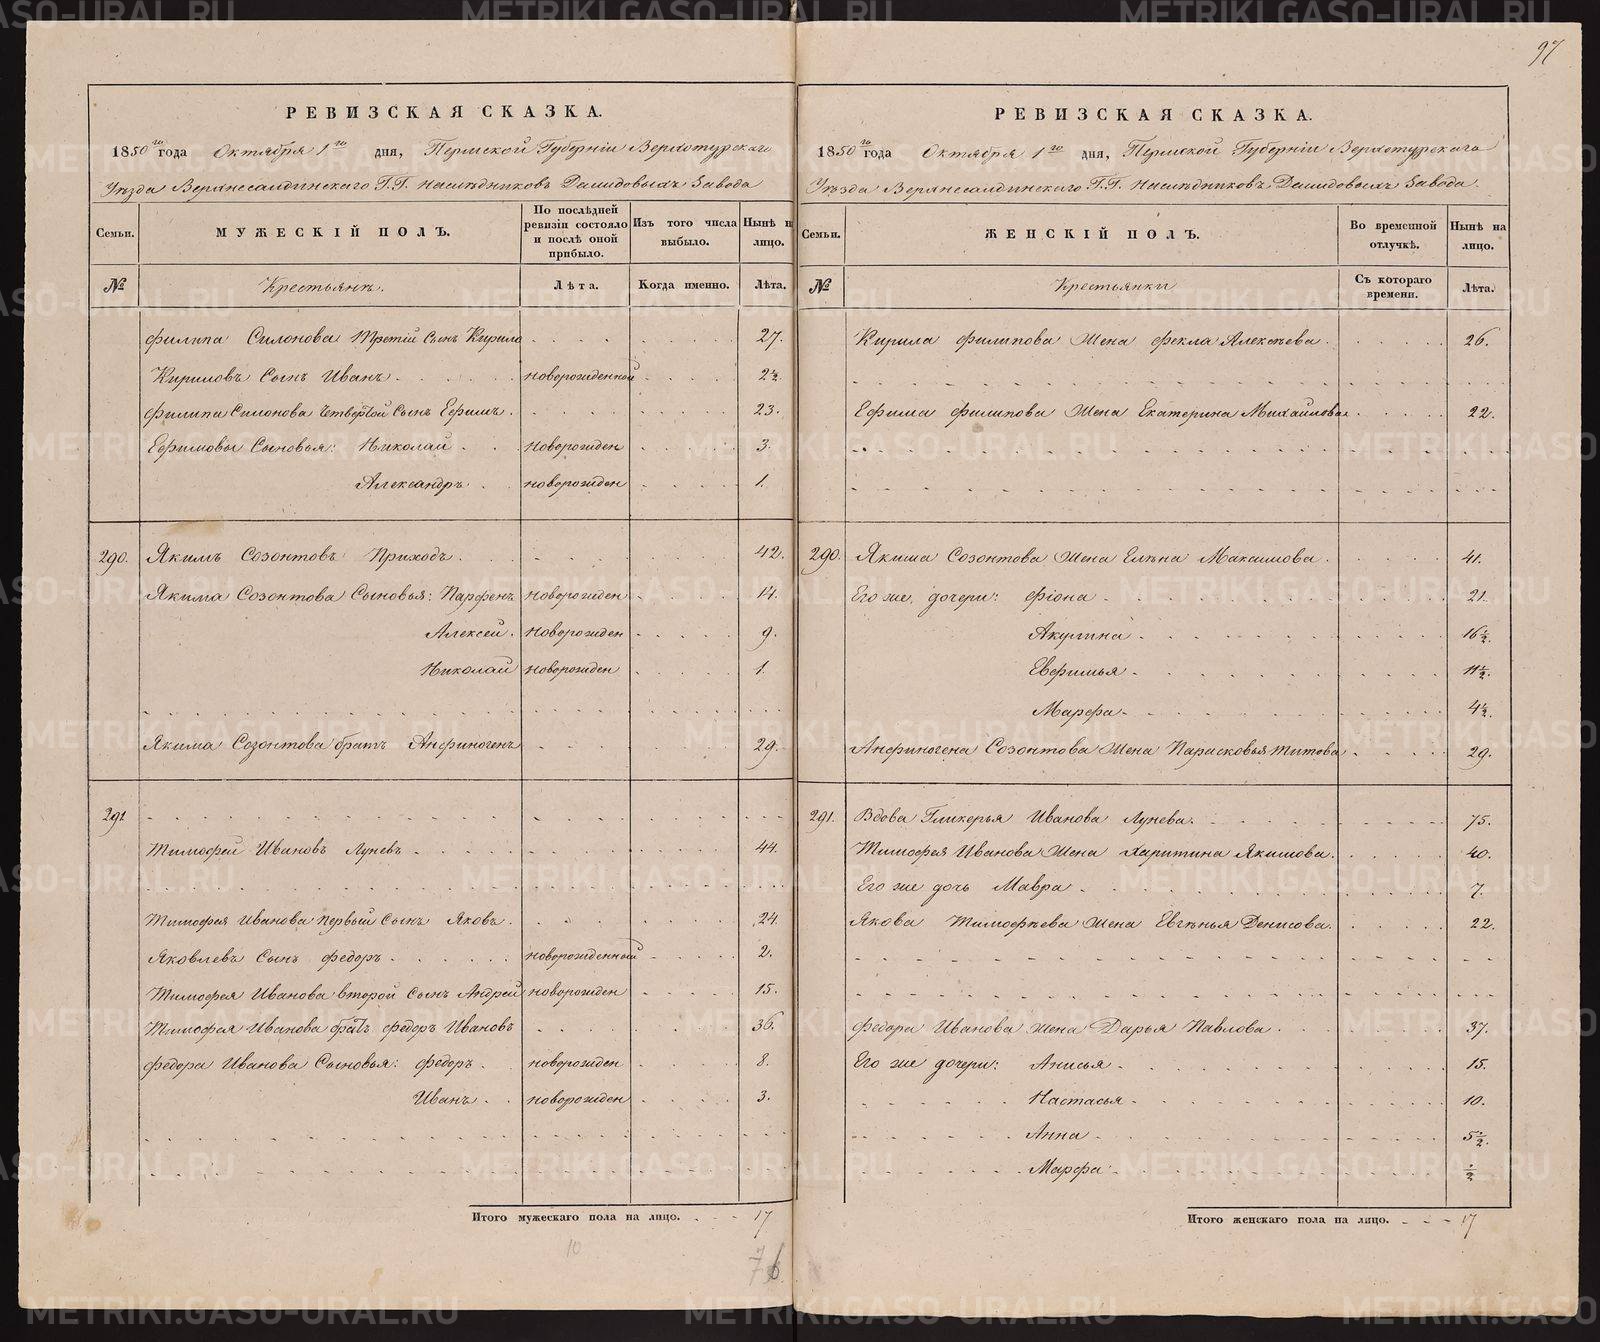 97
РЕВИЗСКАЯ СКАЗКА.
1850го года Октября 1го дня, Пермской Губерніи Верхотурскаго
Уѣзда Верхнесалдинскаго Г.Г. Наслѣдниковъ Демидовыхъ Завода
Семьи.
МУЖЕСКІЙ ПОЛЪ.
По послѣдней ревизіи состояло и послѣ оной прибыло.
Изъ того числа выбыло.
Нынѣ н лицо.
№
Крестьянъ.
Лѣта.
Когда именно.
Лѣта.
Филипа Силонова Третій Сынъ Кирило 27.
Кириловъ Сынъ Иванъ новорожденной 2½
Филипа Силонова Четвертой Сынъ Ефимъ 23.
Ефимовы Сыновья: Николай новорожден 3.
Александръ новорожден 1.
290. Якимъ Созонтовъ Приходъ 42.
Якима Созонтова Сыновья: Парфенъ новорожден 14.
Алексей новорожден 9.
Николай новорожден 1.
Якима Созонтова братъ Анфиногенъ 29.
291
Тимофей Ивановъ Луневъ 44.
Тимофея Иванова первый Сынъ Яковъ 24.
Яковлевъ Сынъ Федоръ новорожденный 2.
Тимофея Иванова второй Сынъ Андрей новорожден 15.
Тимофея Иванова братъ Федоръ Ивановъ 36.
Федора Иванова Сыновья: Федоръ новорожден 8.
Иванъ новорожден 3.
Итого мужескаго пола на лицо. 17
10
76
РЕВИЗСКАЯ СКАЗКА.
1850го года Октября 1го дня, Пермской Губерніи Верхотурскаго
Уѣзда Верхнесалдинскаго Г.Г. Наслѣдниковъ Демидовыхъ Завода.
Семьи.
ЖЕНСКІЙ ПОЛЪ.
Во временной отлучкѣ.
Нынѣ на лицо.
№
Крестьянки
Съ котораго времени.
Лѣта.
Кирила Филипова Жена Фекла Алексѣева 26.
Ефима Филипова Жена Екатерина Михайлова 22.
290. Якима Созонтова Жена Елѣна Максимова 41.
Его же дочери: Фіона 21.
Акулина 16½
Евфимья 11½
Марфа 4½
Анфиногена Созонтова Жена Парасковья Титова 29.
291. Вдова Гликерья Иванова Лунева. 75.
Тимофея Иванова Жена Харитина Якимова. 40.
Его же дочь Мавра 7.
Якова Тимофѣева Жена Евгѣнья Денисова. 22.
Федора Иванова Жена Дарья Павлова 37.
Его же дочери: Анисья 15.
Настасья 10.
Анна 5½
Марфа ½
Итого женскаго пола на лицо. 17
METRIKI.GASO-URAL.RU